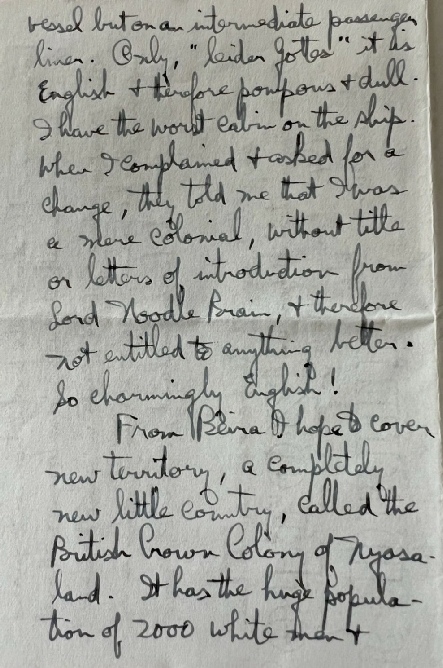 vessel but on an intermediate passenger
liner. Only, "leider Gottes" it is
English & therefore pompous & dull.
I have the worst cabin on the ship.
When I complained & asked for a
change, they told me that I was
a mere colonial, without title
or letters of introduction from
Lord Noodle Brain, & therefore
not entitled to anything better.
So charmingly English!
From Beira I hope to cover
new territory, a completly
new little country, called the
British Crown Colony of Nyasa-
land. It has the huge popula-
tion of 2000 white men &